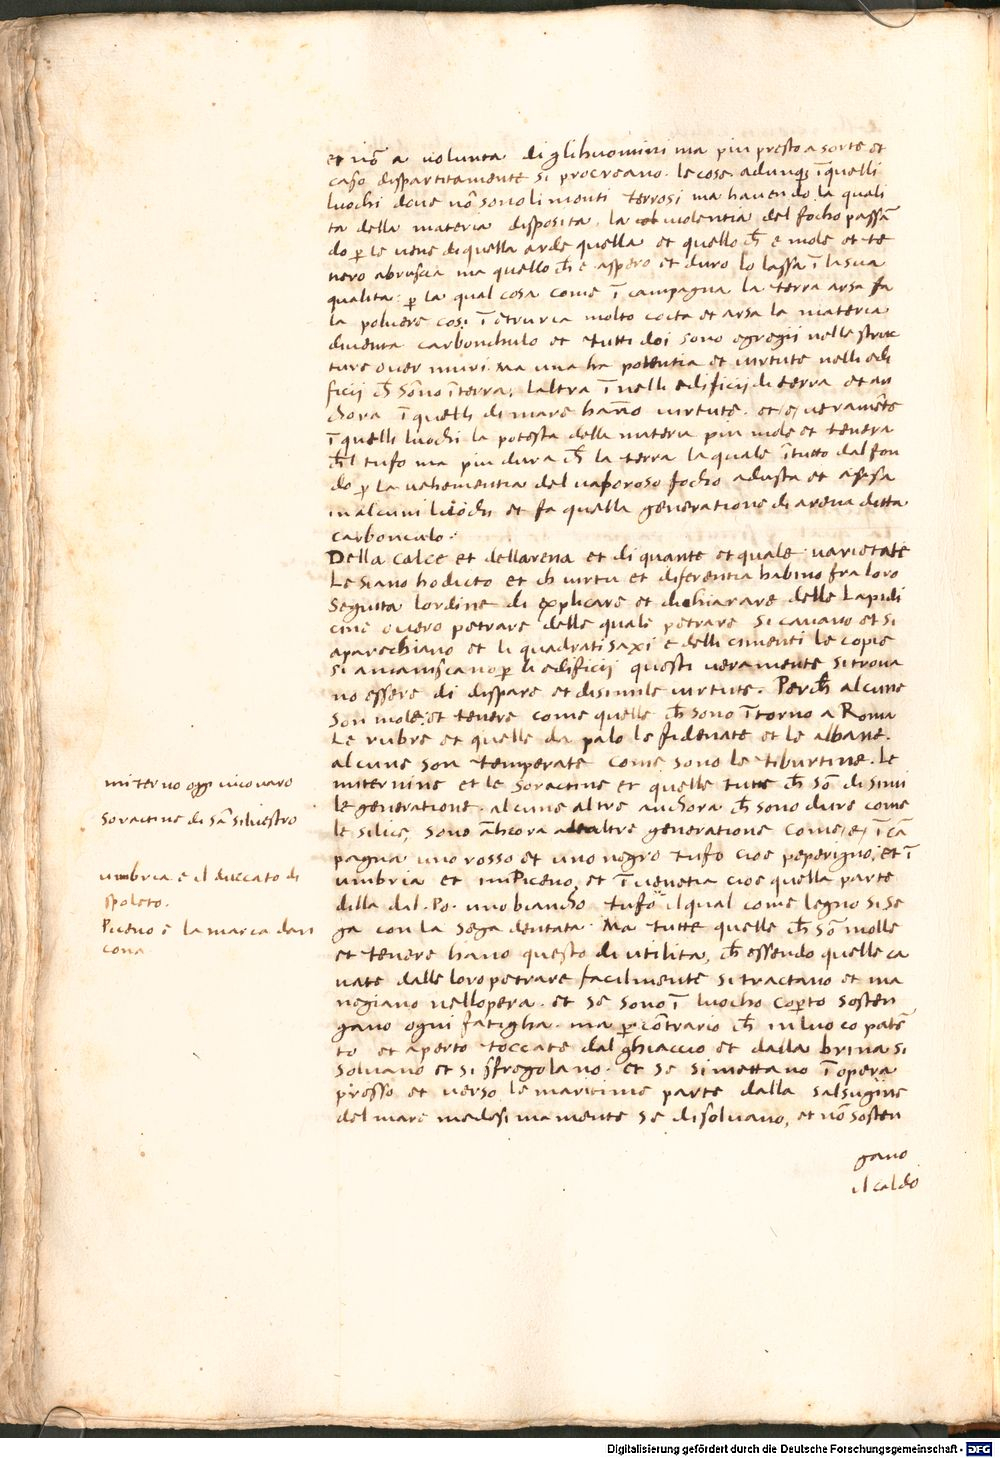 et nō a volunta di glihuomini ma piu presto a sorte et
caso dispartitamente si procreano. le cose adunq; ī quelli
luochi dove nō sono li monti terrosi ma havendo la quali
ta della materia disposita, la violentia del focho passā
do ꝑ le vene di quella arde quella et quello ch̄ e mole et te
nero abruscia ma quello ch̄ e aspero et duro lo lassa ī la sua
qualita. ꝑ la qual cosa come ī campagna la terra arsa fa
la polvere cosi ī etruria molto cocta et arsa la materia
diventa carbonchulo et tutti doi sono egregii nelle struc
ture over muri. Ma una ha potentia et virtute nelli edi
ficii ch̄ sōno ī terra, laltra ī nelli edificii di terra et an
chora ī quelli di mare hāno virtute. et e veramēte
ī quelli luochi la potesta della materia piu mole et tenera
ch̄l tufo ma piu dura ch̄ la terra la quale ī tutto dal fon
do ꝑ la vehementia del vaporoso focho adusta et
in alcuni luochi et fa quella generatione di arena ditta
carbonculo.
Della calce et dellarena et di quante et quale varietate
Le siano ho dicto et ch̄ virtu et diferentia habino fra loro
Seguita lordine di explicare et dichiarare delle Lapidi
cine overo petrare delle quale petrare si cavano et si
aparechiano et li quadrati saxi e delli cimenti le copie
si amaniscano ꝑ li edificii questi veramente si trova
no essere di dispare et disimile virtute. Perch̄ alcune
son mole et tenere come quelle ch̄ sono ītorno a Roma
Le rubre et quelle da palo le fidenate et le albane.
alcune son temperate come sono le tiburtine. Le
miternine et le soractine et quelle tutte ch̄ sō di simi
le generatione. alcune altre anchora ch̄ sono dure come
le silice, sono āchora altre generatione come e ī cā
pagna uno rosso et uno negro tufo cioe peperigno, et ī
umbria et in Piceno, et ī venetia cioe quella parte
dilla dal. Po. uno biancho tufo il qual come legno si se
ga con la sega dentata. Ma tutte quelle ch̄ sō molle
et tenere hano questo di utilita, ch̄ essendo quelle ca
vate dalle loro petrare facilmente si tractano et ma
negiano nellopera. et se sono ī luocho coperto sosten
gano ogni fatigha. ma ꝑ cōtrario ch̄ in luoco patē
to et aperto toccate dal ghiaccio et dalla brina si
solvano et si sfregolano. et se si mettano ī opera
presso et verso le maritime parte dalla salsugine
del mare medesimamente se disolvano, et nō sosten
gano
il caldo
miterno oggi vicovaro
Soractine di Sā silvestro
umbria e il duccato di
spoleto.
Piceno e la marca dan
cona
Digitalisierung gefördert durch die Deutsche Forschungsgemeinschaft - DFG